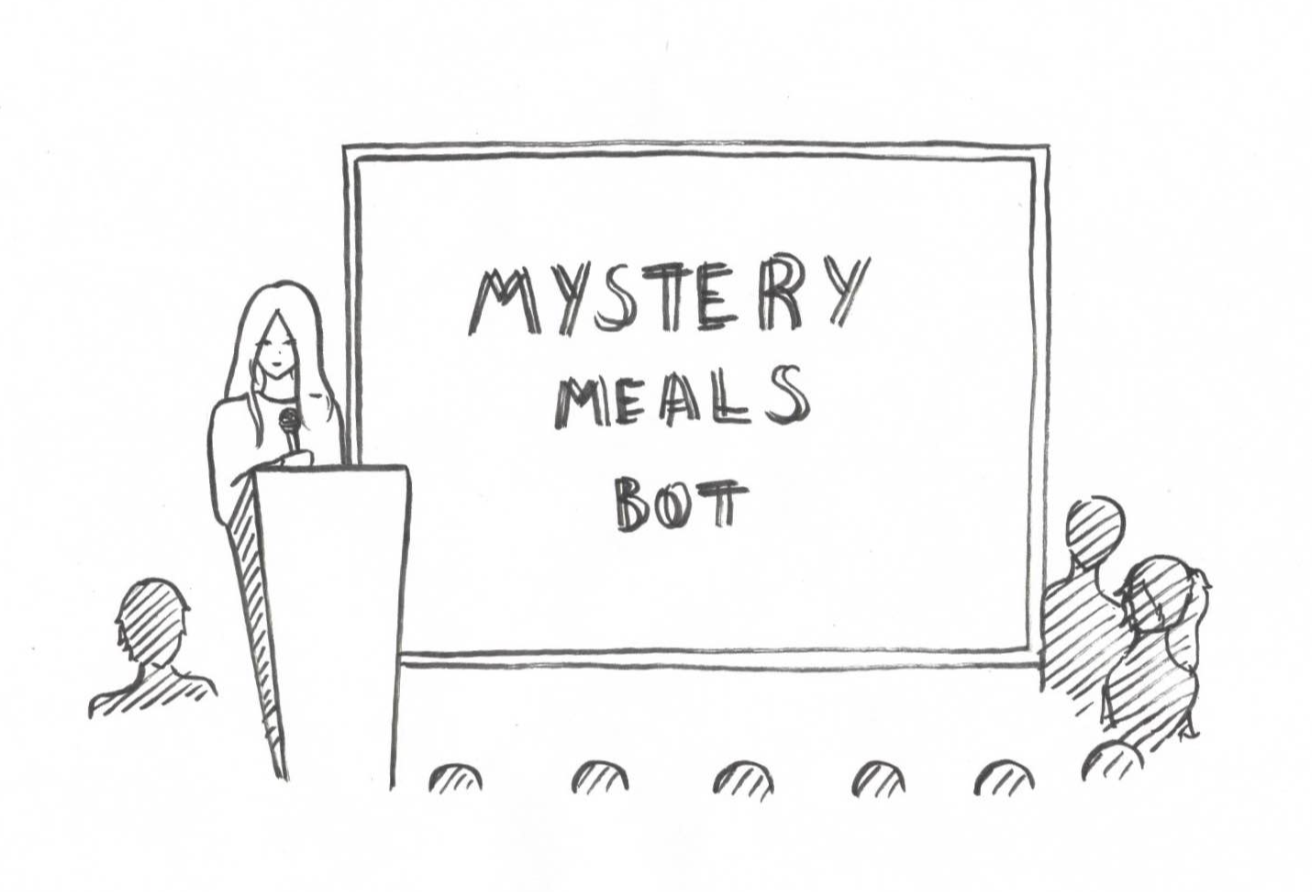 MYSTERY
MEALS
BOT